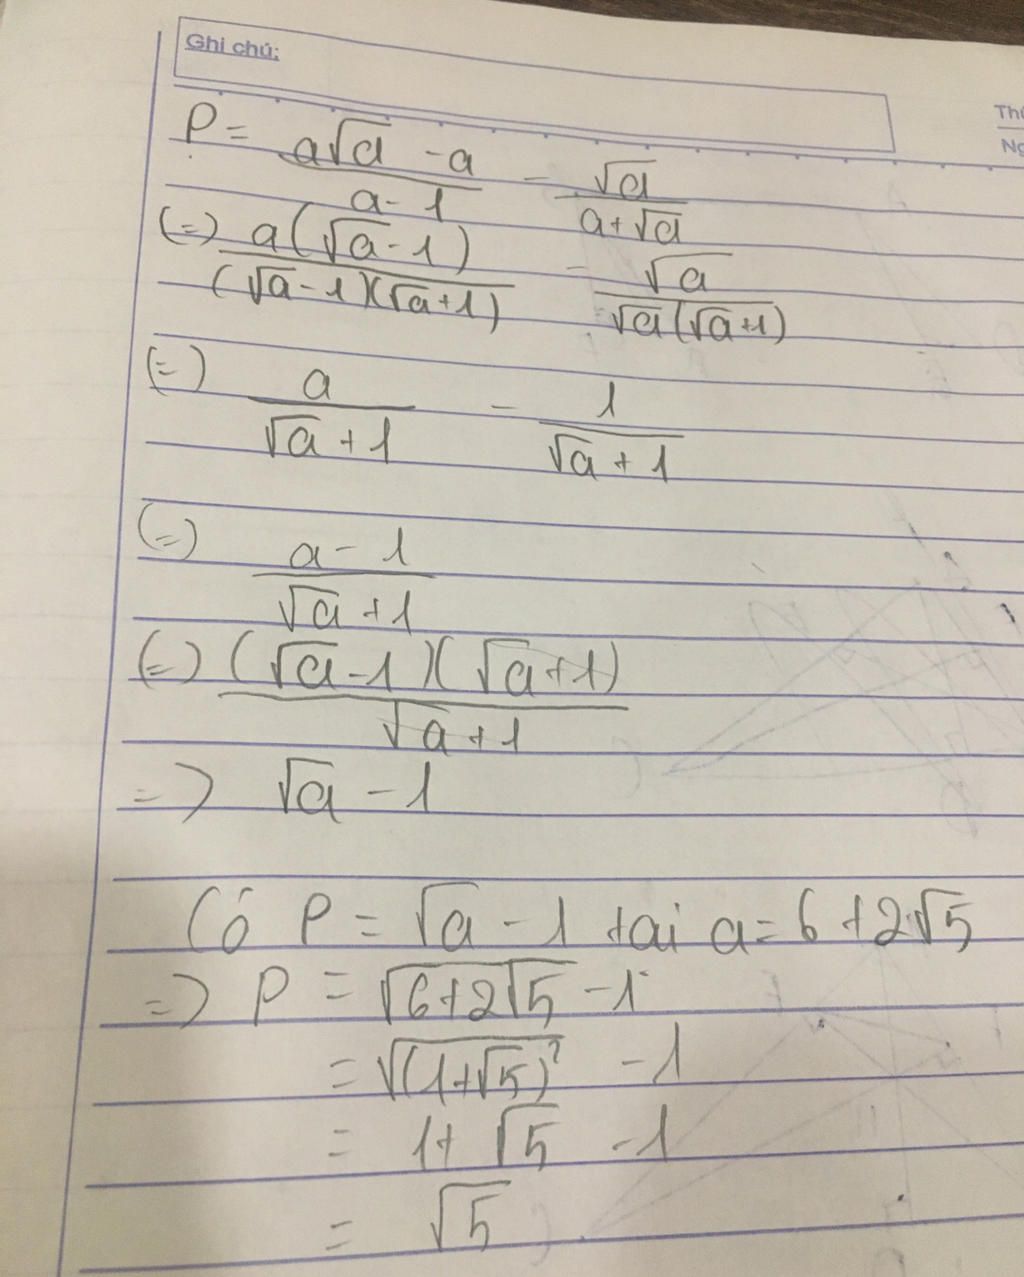 Ghi chú:
Th
Ng
P = (a√a - a)/(a - 1) - √a/(a + √a)
(=) a(√a - 1)/((√a - 1)(√a + 1)) - √a/(√a(√a + 1))
(=) a/(√a + 1) - 1/(√a + 1)
(=) (a - 1)/(√a + 1)
(=) (√a - 1)(√a + 1)/(√a + 1)
=> √a - 1
Có P = √a - 1 tai a = 6 + 2√5
=> P = √(6 + 2√5) - 1
= √((1 + √5)²) - 1
= 1 + √5 - 1
= √5